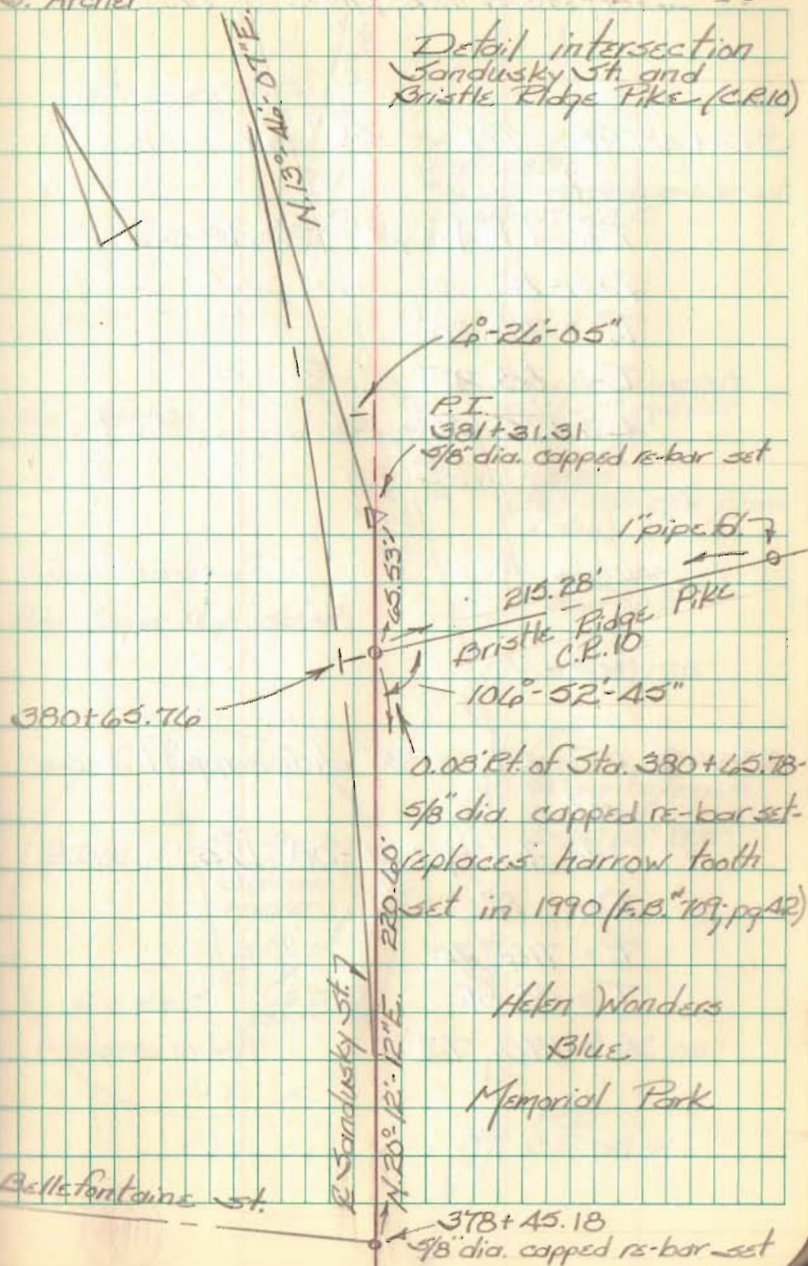 Archer
Detail intersection
Sandusky St. and
Bristle Ridge Pike (C.R.10)
N.13°-46'-07"E.
6°-26'-05"
P.I.
381+31.31
5/8" dia. capped re-bar set
1" pipe fd.
65.53'
215.28'
Bristle Ridge Pike
C.R.10
106°-52'-45"
380+65.76
0.08' Rt. of Sta. 380+65.78-
5/8" dia. capped re-bar set-
replaces harrow tooth
set in 1990 (F.B.#709; pg 42)
220.60'
Helen Wonders
Blue
Memorial Park
℄ Sandusky St.
N.20°-12'-12"E.
Bellefontaine St.
378+45.18
5/8" dia. capped re-bar set